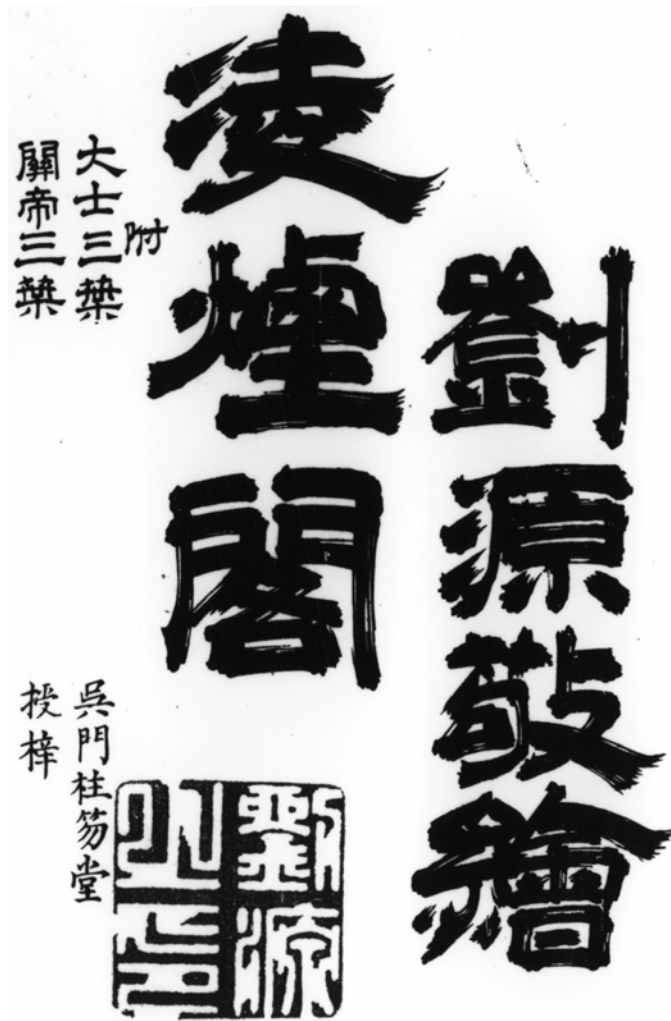 劉源敬繪
凌煙閣
附
大士三葉
關帝三葉
吳門柱笏堂
授梓
劉源